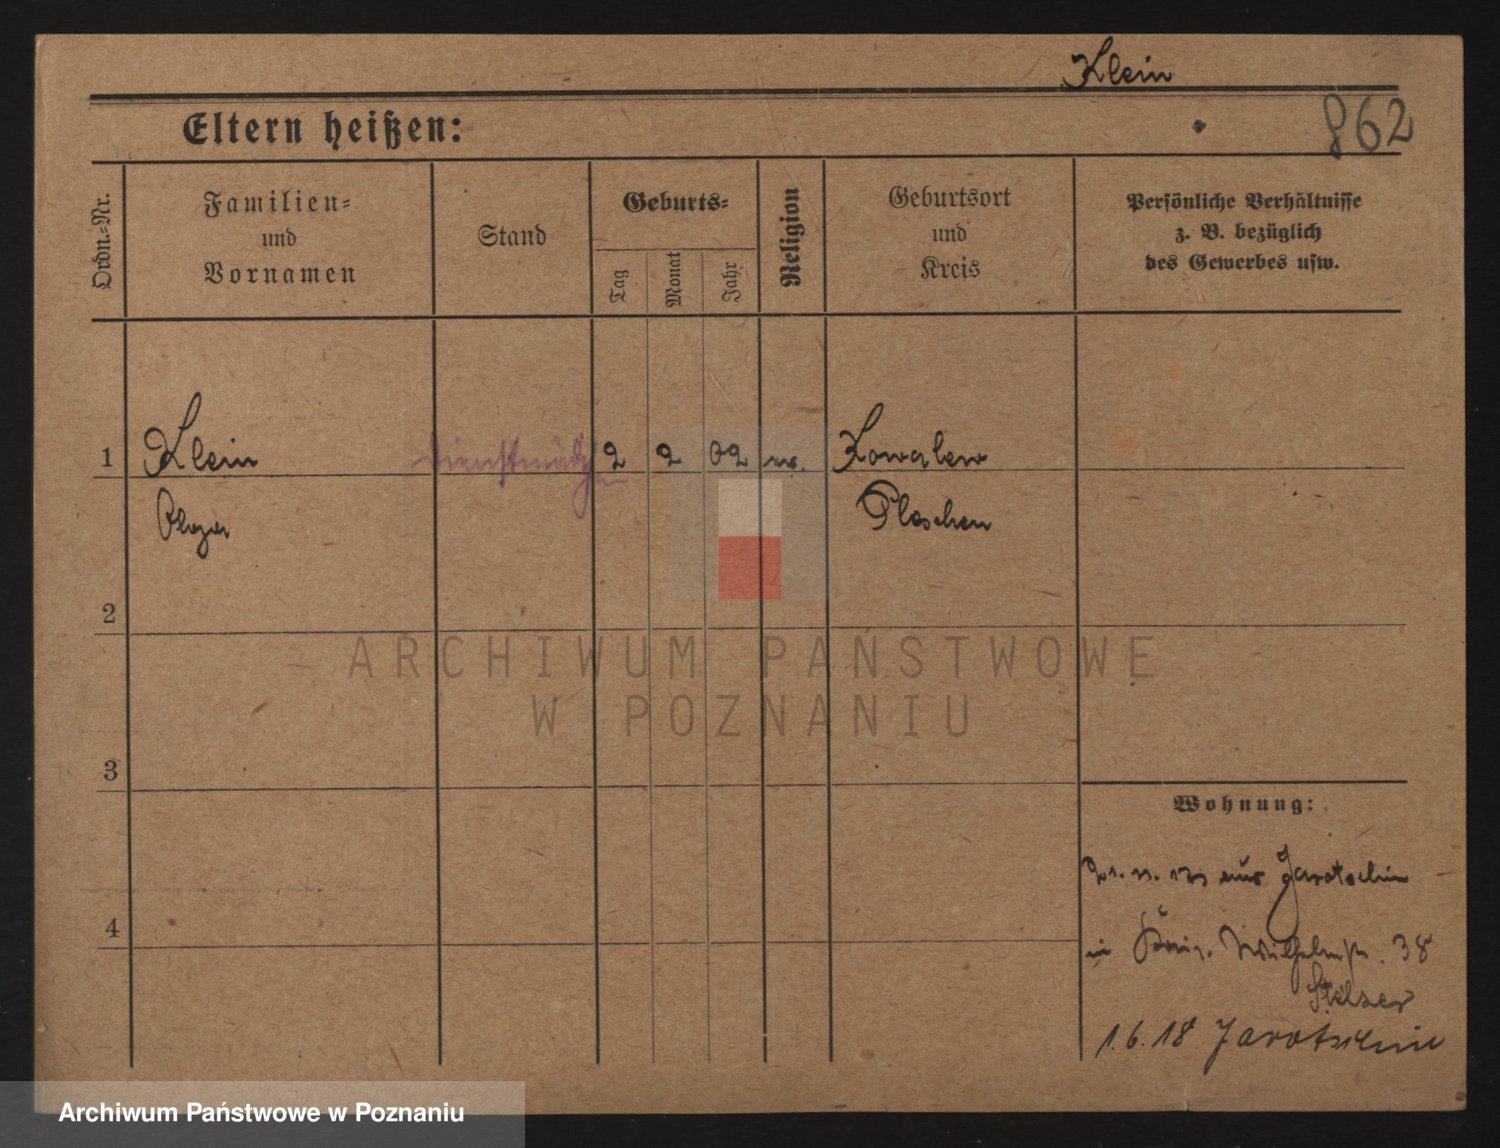 Klein
862
Eltern heißen:
Ordn.-Nr.
Familien-
und
Vornamen
Stand
Geburts-
Tag
Monat
Jahr
Religion
Geburtsort
und
Kreis
Persönliche Verhältnisse
z. B. bezüglich
des Gewerbes usw.
1
Klein
2 2 02
Kowalew
Pleschen
2
ARCHIWUM PAŃSTWOWE
W POZNANIU
3
Wohnung:
aus Jarotschin
4
in König. Wilhelmstr. 38
Stelzer
1.6.18 Jarotschin
Archiwum Państwowe w Poznaniu